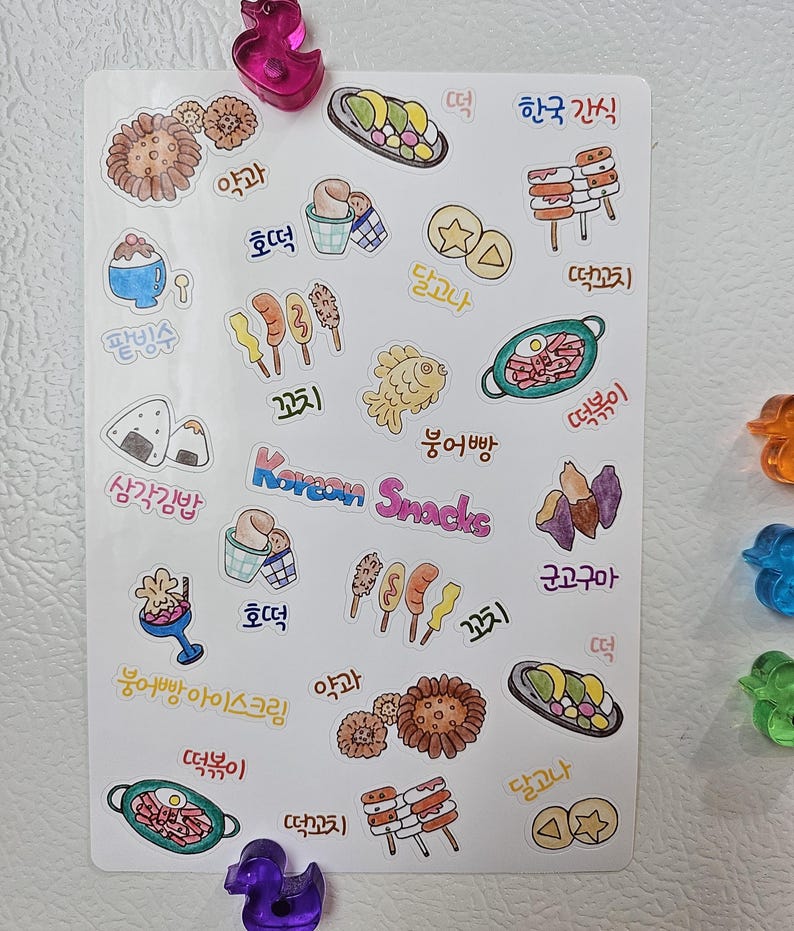 떡
한국 간식
약과
호떡
달고나
떡꼬치
팥빙수
꼬치
떡볶이
붕어빵
삼각김밥
Korean Snacks
군고구마
호떡
꼬치
떡
붕어빵아이스크림
약과
떡볶이
달고나
떡꼬치